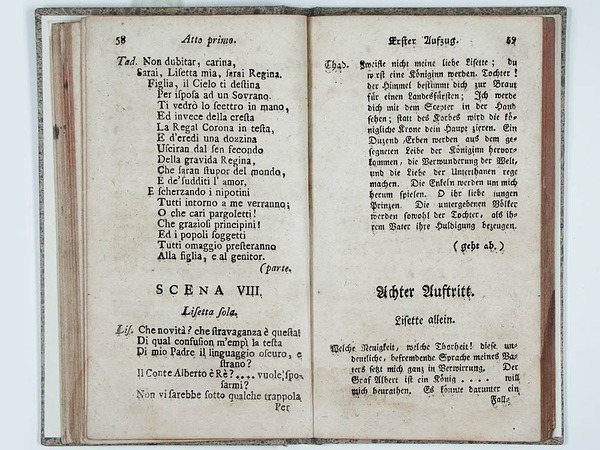 58 Atto primo.
Tad. Non dubitar, carina,
Sarai, Lisetta mia, sarai Regina.
Figlia, il Cielo ti destina
Per isposa ad un Sovrano.
Ti vedrò lo scettro in mano,
Ed invece della cresta
La Regal Corona in testa,
E d'eredi una dozzina
Usciran dal sen fecondo
Della gravida Regina,
Che saran stupor del mondo,
E de' sudditi l' amor,
E scherzando i nipotini
Tutti intorno a me verranno;
O che cari pargoletti!
Che graziosi principini!
Ed i popoli soggetti
Tutti omaggio presteranno
Alla figlia, e al genitor.
(parte.
SCENA VIII.
Lisetta sola.
Lis. Che novità? che stravaganza è questa!
Di qual confusion m'empì la testa
Di mio Padre il linguaggio oscuro, e
strano?
Il Conte Alberto è Rè? .... vuole, spo-
sarmi?
Non vi sarebbe sotto qualche trappola
Per
Erster Aufzug. 59
Thad. Zweifle nicht meine liebe Lisette; du
wirst eine Königinn werden. Tochter!
der Himmel bestimmt dich zur Braut
für einen Landesfürsten; Ich werde
dich mit dem Scepter in der Hand
sehen; statt des Korbes wird die kö-
nigliche Krone dein Haupt zieren. Ein
Duzend Erben werden aus dem ge-
segneten Leibe der Königinn hervor-
kommen, die Verwunderung der Welt,
und die Liebe der Unterthanen rege
machen. Die Enkeln werden um mich
herum spielen. O ihr liebe jungen
Prinzen. Die untergebenen Völker
werden sowohl der Tochter, als ih-
rem Vater ihre Huldigung bezeugen.
(geht ab.)
Achter Auftritt.
Lisette allein.
Welche Neuigkeit, welche Thorheit! diese un-
deutliche, befremdende Sprache meines Va-
ters setzt mich ganz in Verwirrung. Der
Graf Albert ist ein König .... will
mich heurathen. Es könnte darunter ein
Fall-